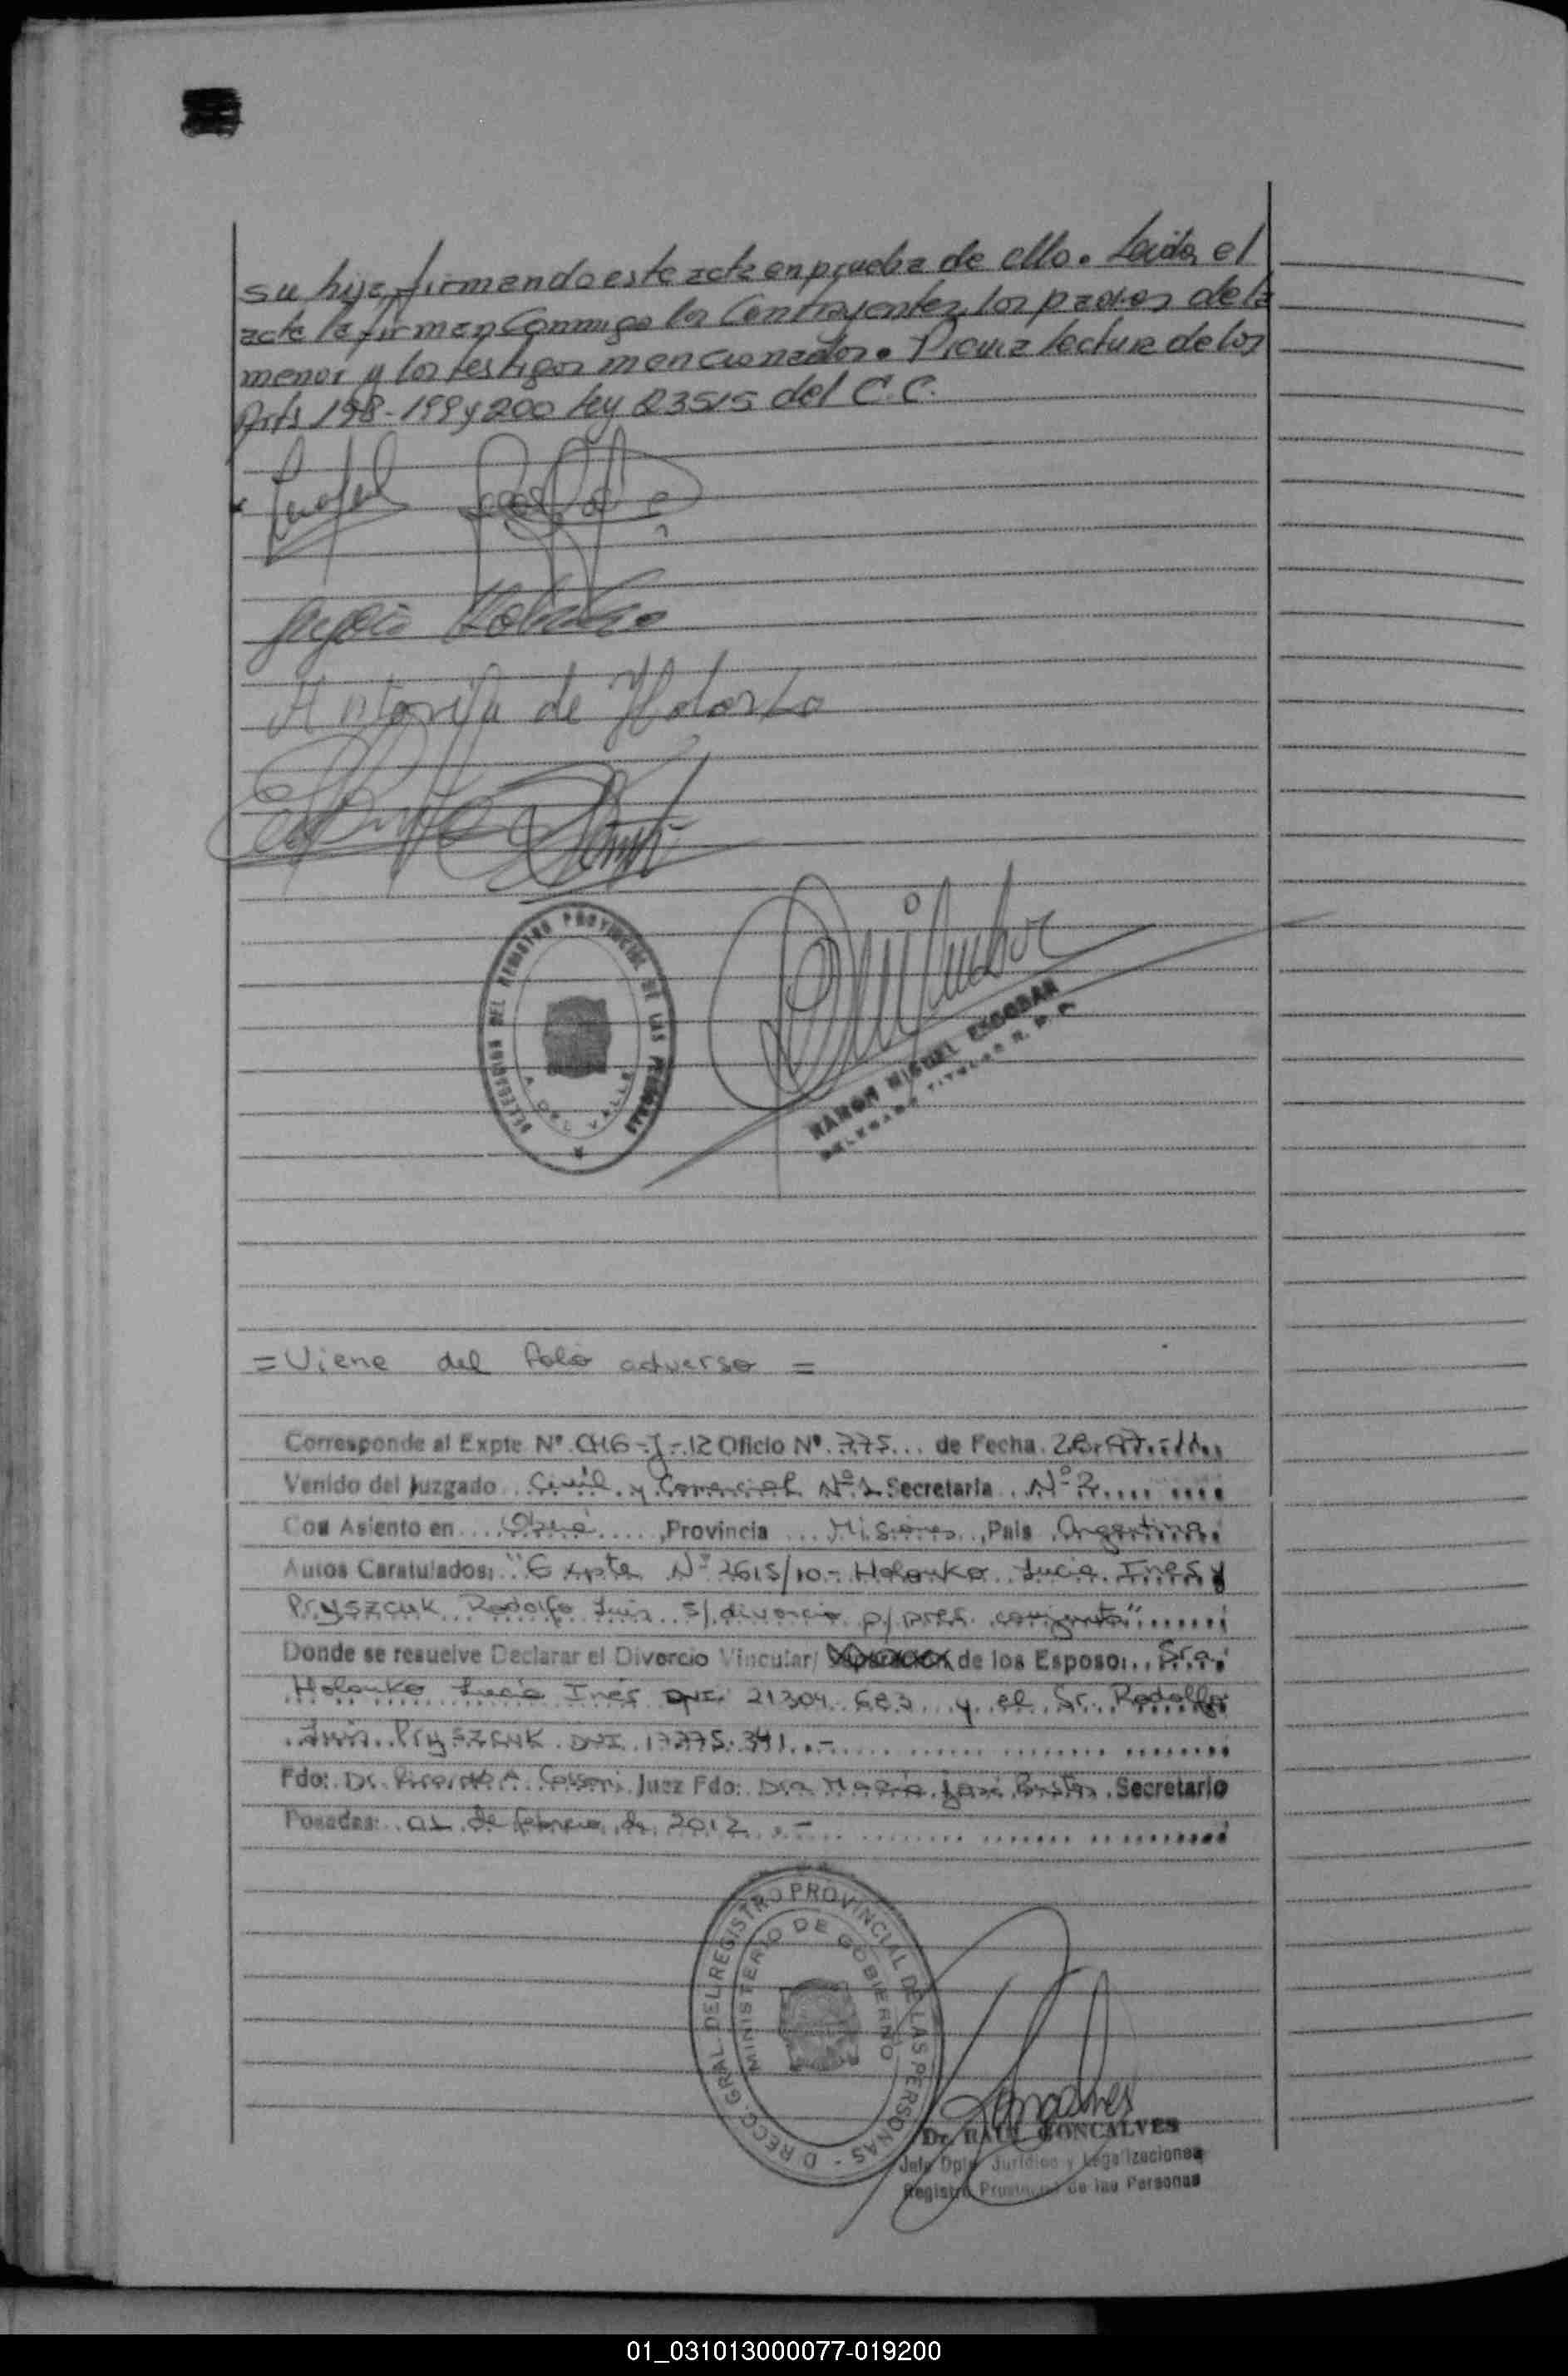 su hija, firmando este acta en prueba de ello. Leida el
acta la firman conmigo los Contrayentes, los padres de la
menor y los testigos mencionados. Previa lectura de los
Arts 198-199 y 200 Ley 23515 del C.C.
Antonia de Holonko
DEL REGISTRO PROVINCIAL DE LAS PERSONAS
RAMON MIGUEL ESCOBAR
DELEGADO TITULAR R. P. P.
= Viene del folio adverso =
Corresponde al Expte Nº 046-J-12 Oficio Nº 775... de Fecha
Venido del Juzgado Civil y Comercial Nº 1 Secretaria Nº 2
Con Asiento en Oberá, Provincia Misiones, Pais Argentina
Autos Caratulados: "Expte Nº 2615/10- Holonko Lucia Ines y
Pryszcuk Rodolfo Luis s/ divorcio p/ pres. conjunta"
Donde se resuelve Declarar el Divorcio Vincular/ de los Esposo: Sra.
Holonko Lucia Inés DNI 21304.683 y el Sr. Rodolfo
Luis Pryszcuk DNI 17275.341.-
Fdo: Dr. Juez Fdo: Dra Maria José Secretario
Posadas: 01 de febrero de 2012.-
DIRECC. GRAL. DEL REGISTRO PROVINCIAL DE LAS PERSONAS -
MINISTERIO DE GOBIERNO
Dr. RAUL GONCALVES
Jefe Dpto. Jurídico y Legalizaciones
Registro Provincial de las Personas
01_031013000077-019200